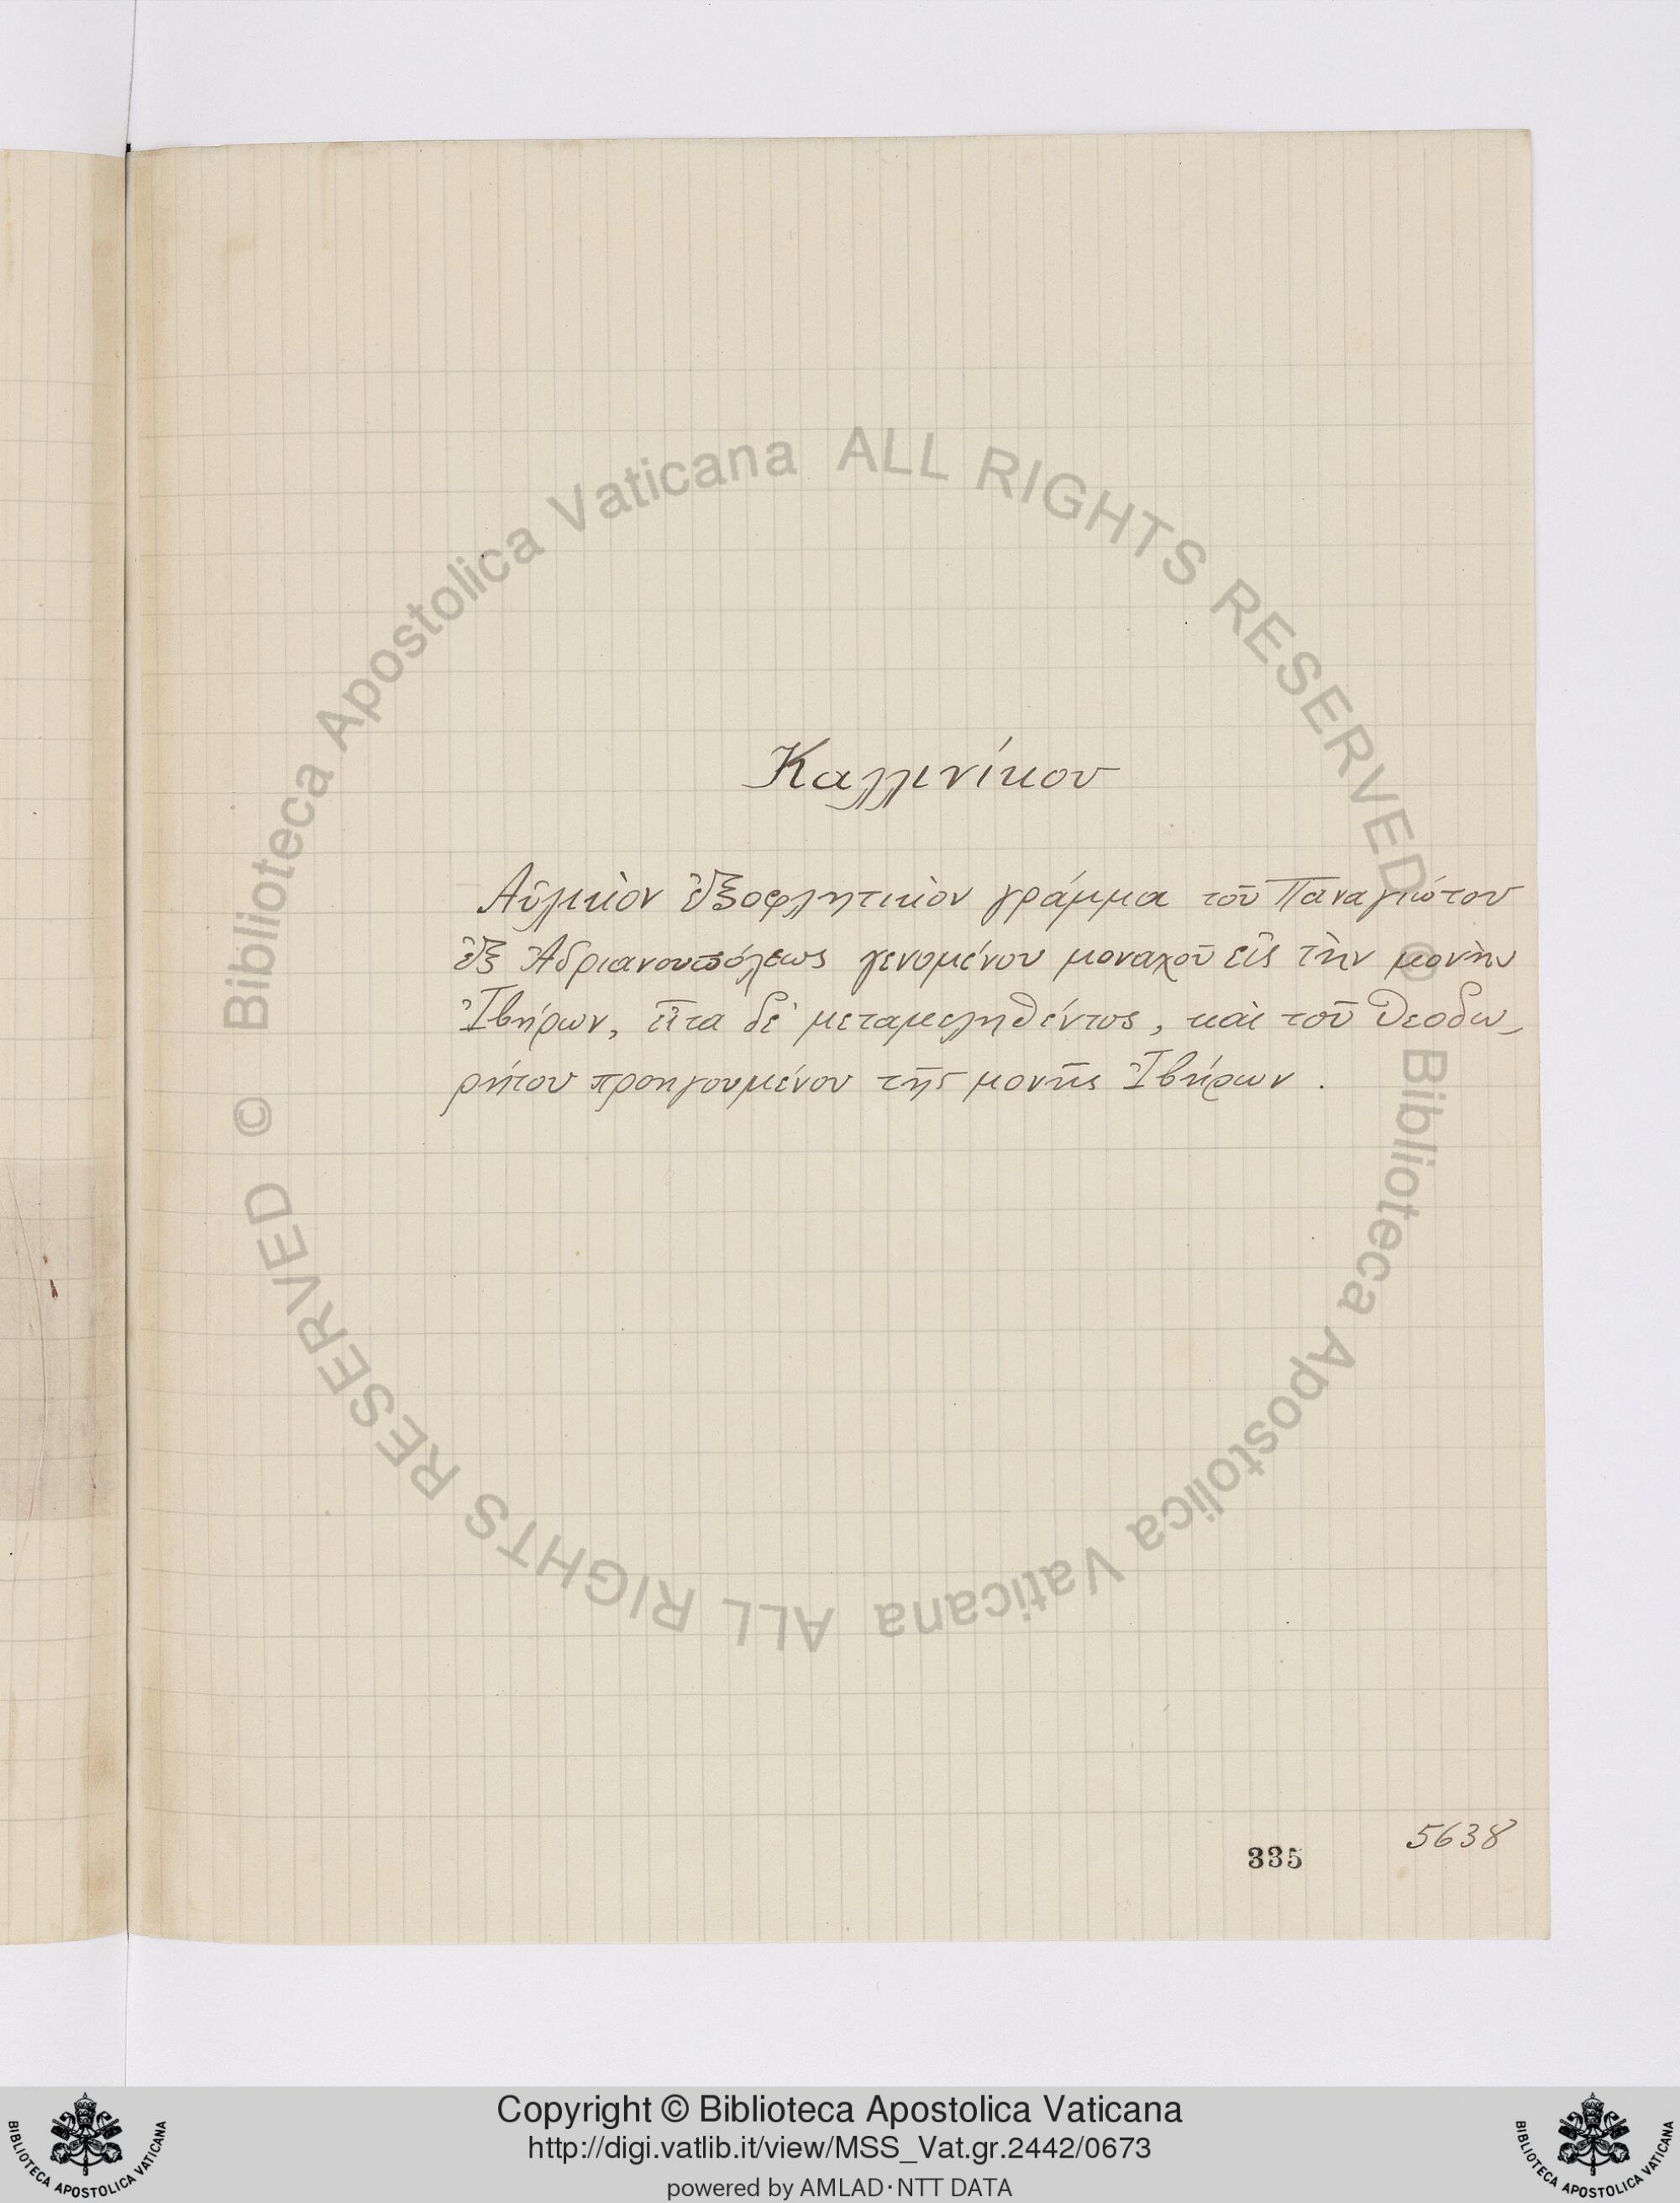 Καλλινίκου
Αὐλικὸν ἐξοφλητικὸν γράμμα τοῦ Παναγιότου
ἐξ Ἀδριανουπόλεως γενομένου μοναχοῦ εἰς τὴν μονὴν
Ἰβήρων, εἶτα δὲ μεταμεληθέντος, καὶ τοῦ Θεοδω-
ρήτου προηγουμένου τῆς μονῆς Ἰβήρων.
5638
335
© Biblioteca Apostolica Vaticana ALL RIGHTS RESERVED
© Biblioteca Apostolica Vaticana ALL RIGHTS RESERVED
Copyright © Biblioteca Apostolica Vaticana
http://digi.vatlib.it/view/MSS_Vat.gr.2442/0673
powered by AMLAD·NTT DATA
BIBLIOTECA APOSTOLICA VATICANA
BIBLIOTECA APOSTOLICA VATICANA